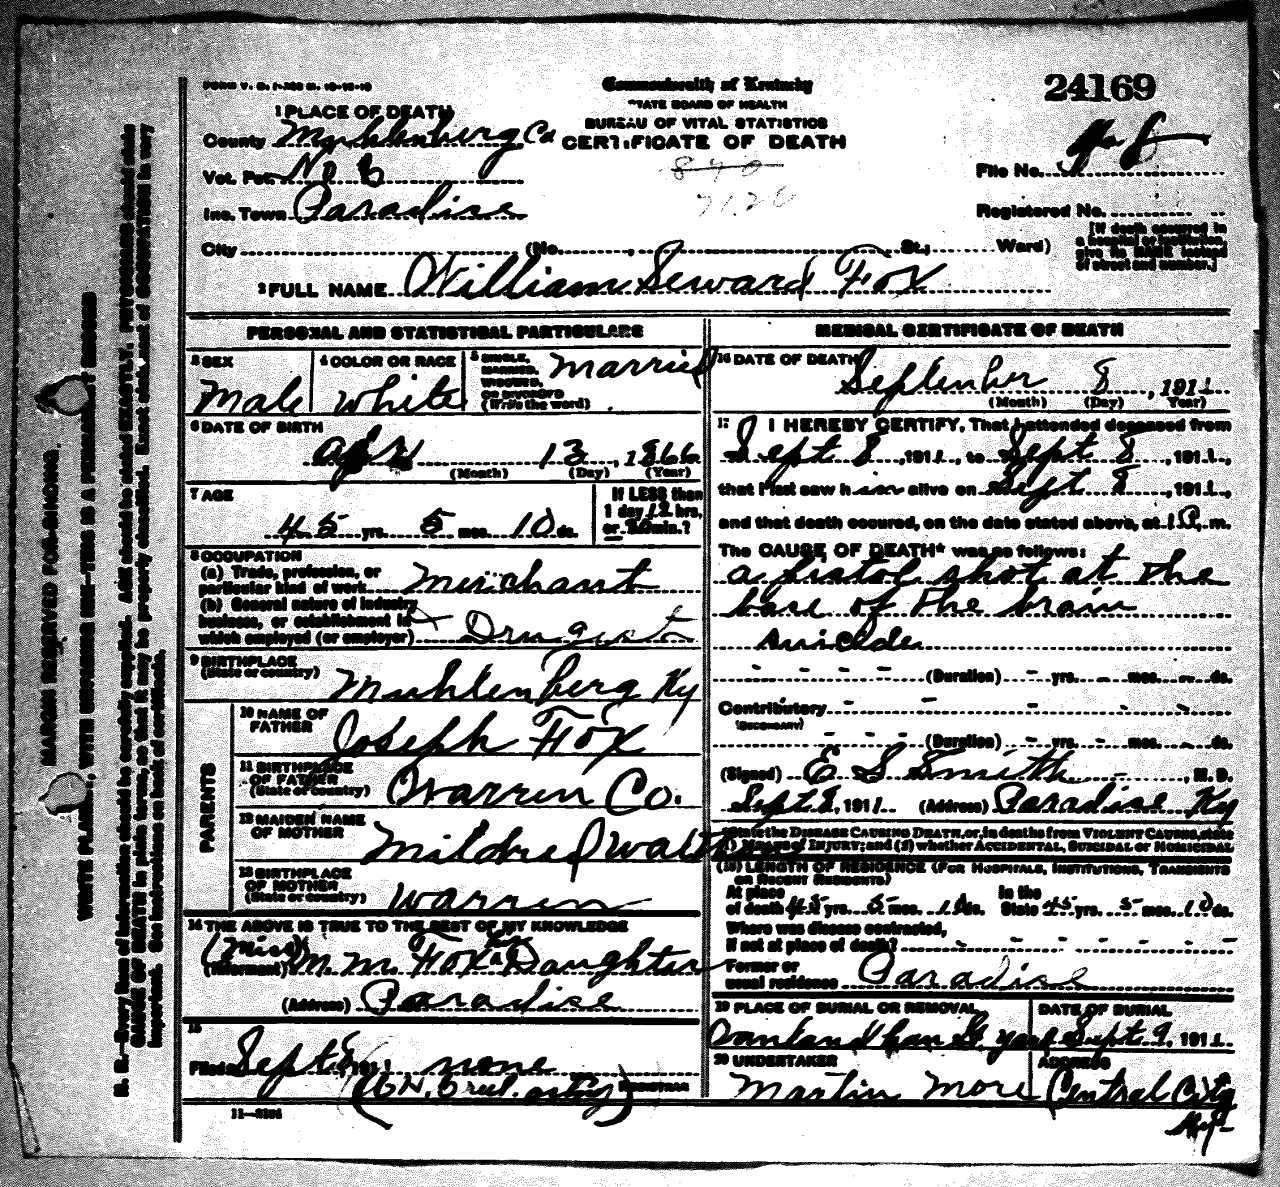 Commonwealth of Kentucky
STATE BOARD OF HEALTH
BUREAU OF VITAL STATISTICS
CERTIFICATE OF DEATH
24169
1 PLACE OF DEATH
County Muhlenberg Co
Vot. Pct. No 6
Inc. Town Paradise
840
7126
File No.
Registered No.
[If death occurred in
a hospital or institution
give its NAME instead
of street and number.]
City (No. , St.; Ward)
2 FULL NAME William Seward Fox
PERSONAL AND STATISTICAL PARTICULARS
3 SEX
Male
4 COLOR OR RACE
White
5 SINGLE,
MARRIED,
WIDOWED,
OR DIVORCED
(Write the word)
Married
6 DATE OF BIRTH
Apr 13, 1866
(Month) (Day) (Year)
7 AGE
45 yrs. 5 mos. 10 ds.
If LESS than
1 day 12 hrs.
or 30 min.?
8 OCCUPATION
(a) Trade, profession, or
particular kind of work Merchant
(b) General nature of industry
business, or establishment in
which employed (or employer) Drugist
9 BIRTHPLACE
(State or country) Muhlenberg Ky
PARENTS
10 NAME OF
FATHER Joseph Fox
11 BIRTHPLACE
OF FATHER
(State or country) Warren Co.
12 MAIDEN NAME
OF MOTHER Mildred
13 BIRTHPLACE
OF MOTHER
(State or country) Warren
14 THE ABOVE IS TRUE TO THE BEST OF MY KNOWLEDGE
(Informant) (Miss) M. M. Fox Daughter
(Address) Paradise
15
Filed Sept 8, 191 none
REGISTRAR
11—3184
MEDICAL CERTIFICATE OF DEATH
16 DATE OF DEATH
September 8, 1911
(Month) (Day) (Year)
17 I HEREBY CERTIFY, That I attended deceased from
Sept 8, 1911, to Sept 8, 1911,
that I last saw him alive on Sept 8, 1911,
and that death occured, on the date stated above, at 1 P. m.
The CAUSE OF DEATH* was as follows:
a pistol shot at the
base of the brain
suicide
(Duration) yrs. mos. ds.
Contributory
(SECONDARY)
(Duration) yrs. mos. ds.
(Signed) E S Smith, M. D.
Sept 8, 1911 (Address) Paradise Ky
*State the DISEASE CAUSING DEATH, or, in deaths from VIOLENT CAUSES, state
(1) MEANS OF INJURY; and (2) whether ACCIDENTAL, SUICIDAL or HOMICIDAL
(18) LENGTH OF RESIDENCE (FOR HOSPITALS, INSTITUTIONS, TRANSIENTS
OR RECENT RESIDENTS)
At place In the
of death 45 yrs. 5 mos. 10 ds. State 45 yrs. 5 mos. 10 ds.
Where was disease contracted,
if not at place of death?
Former or
usual residence Paradise
19 PLACE OF BURIAL OR REMOVAL
yard
DATE OF BURIAL
Sept 9, 1911
20 UNDERTAKER
Martin More
ADDRESS
Central City
Ky-
MARGIN RESERVED FOR BINDING.
WRITE PLAINLY, WITH UNFADING INK—THIS IS A PERMANENT RECORD
N. B.—Every item of information should be carefully supplied. AGE should be stated EXACTLY. PHYSICIANS should state
CAUSE OF DEATH in plain terms, so that it may be properly classified. Exact statement of OCCUPATION is very
important. See instructions on back of certificate.